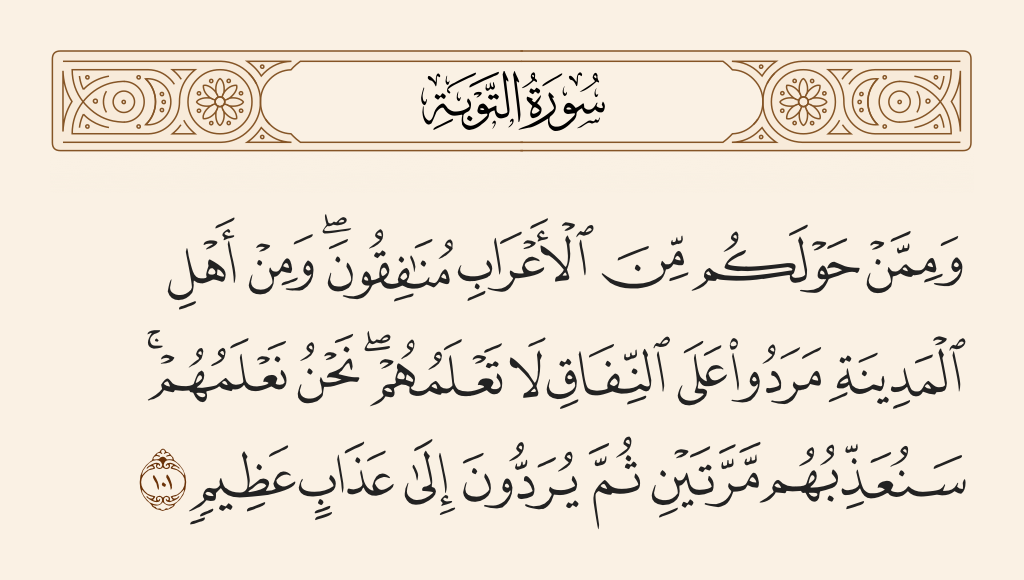 سُورَةُ التَّوْبَةِ
وَمِمَّنْ حَوْلَكُم مِّنَ ٱلْأَعْرَابِ مُنَٰفِقُونَ ۖ وَمِنْ أَهْلِ
ٱلْمَدِينَةِ مَرَدُوا۟ عَلَى ٱلنِّفَاقِ لَا تَعْلَمُهُمْ ۖ نَحْنُ نَعْلَمُهُمْ ۚ
سَنُعَذِّبُهُم مَّرَّتَيْنِ ثُمَّ يُرَدُّونَ إِلَىٰ عَذَابٍ عَظِيمٍ ١٠١